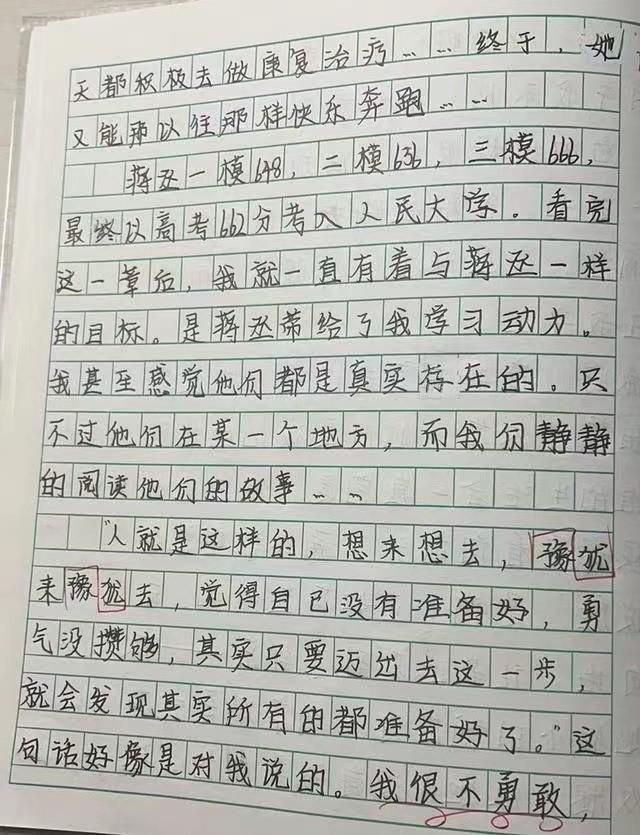 天都积极去做康复治疗……终于，她
又能那以往那样快乐奔跑……
蒋丞一模648，二模656，三模666，
最终以高考662分考入人民大学。看完
这一章后，我就一直有着与蒋丞一样
的目标。是蒋丞带给了我学习动力。
我甚至感觉他们都是真实存在的。只
不过他们在某一个地方，而我们静静
的阅读他们的故事……
“人就是这样的，想来想去，豫犹
来豫犹去，觉得自己没有准备好，勇
气没攒够，其实只要迈出去这一步，
就会发现其实所有的都准备好了。”这
句话好像是对我说的。我很不勇敢，